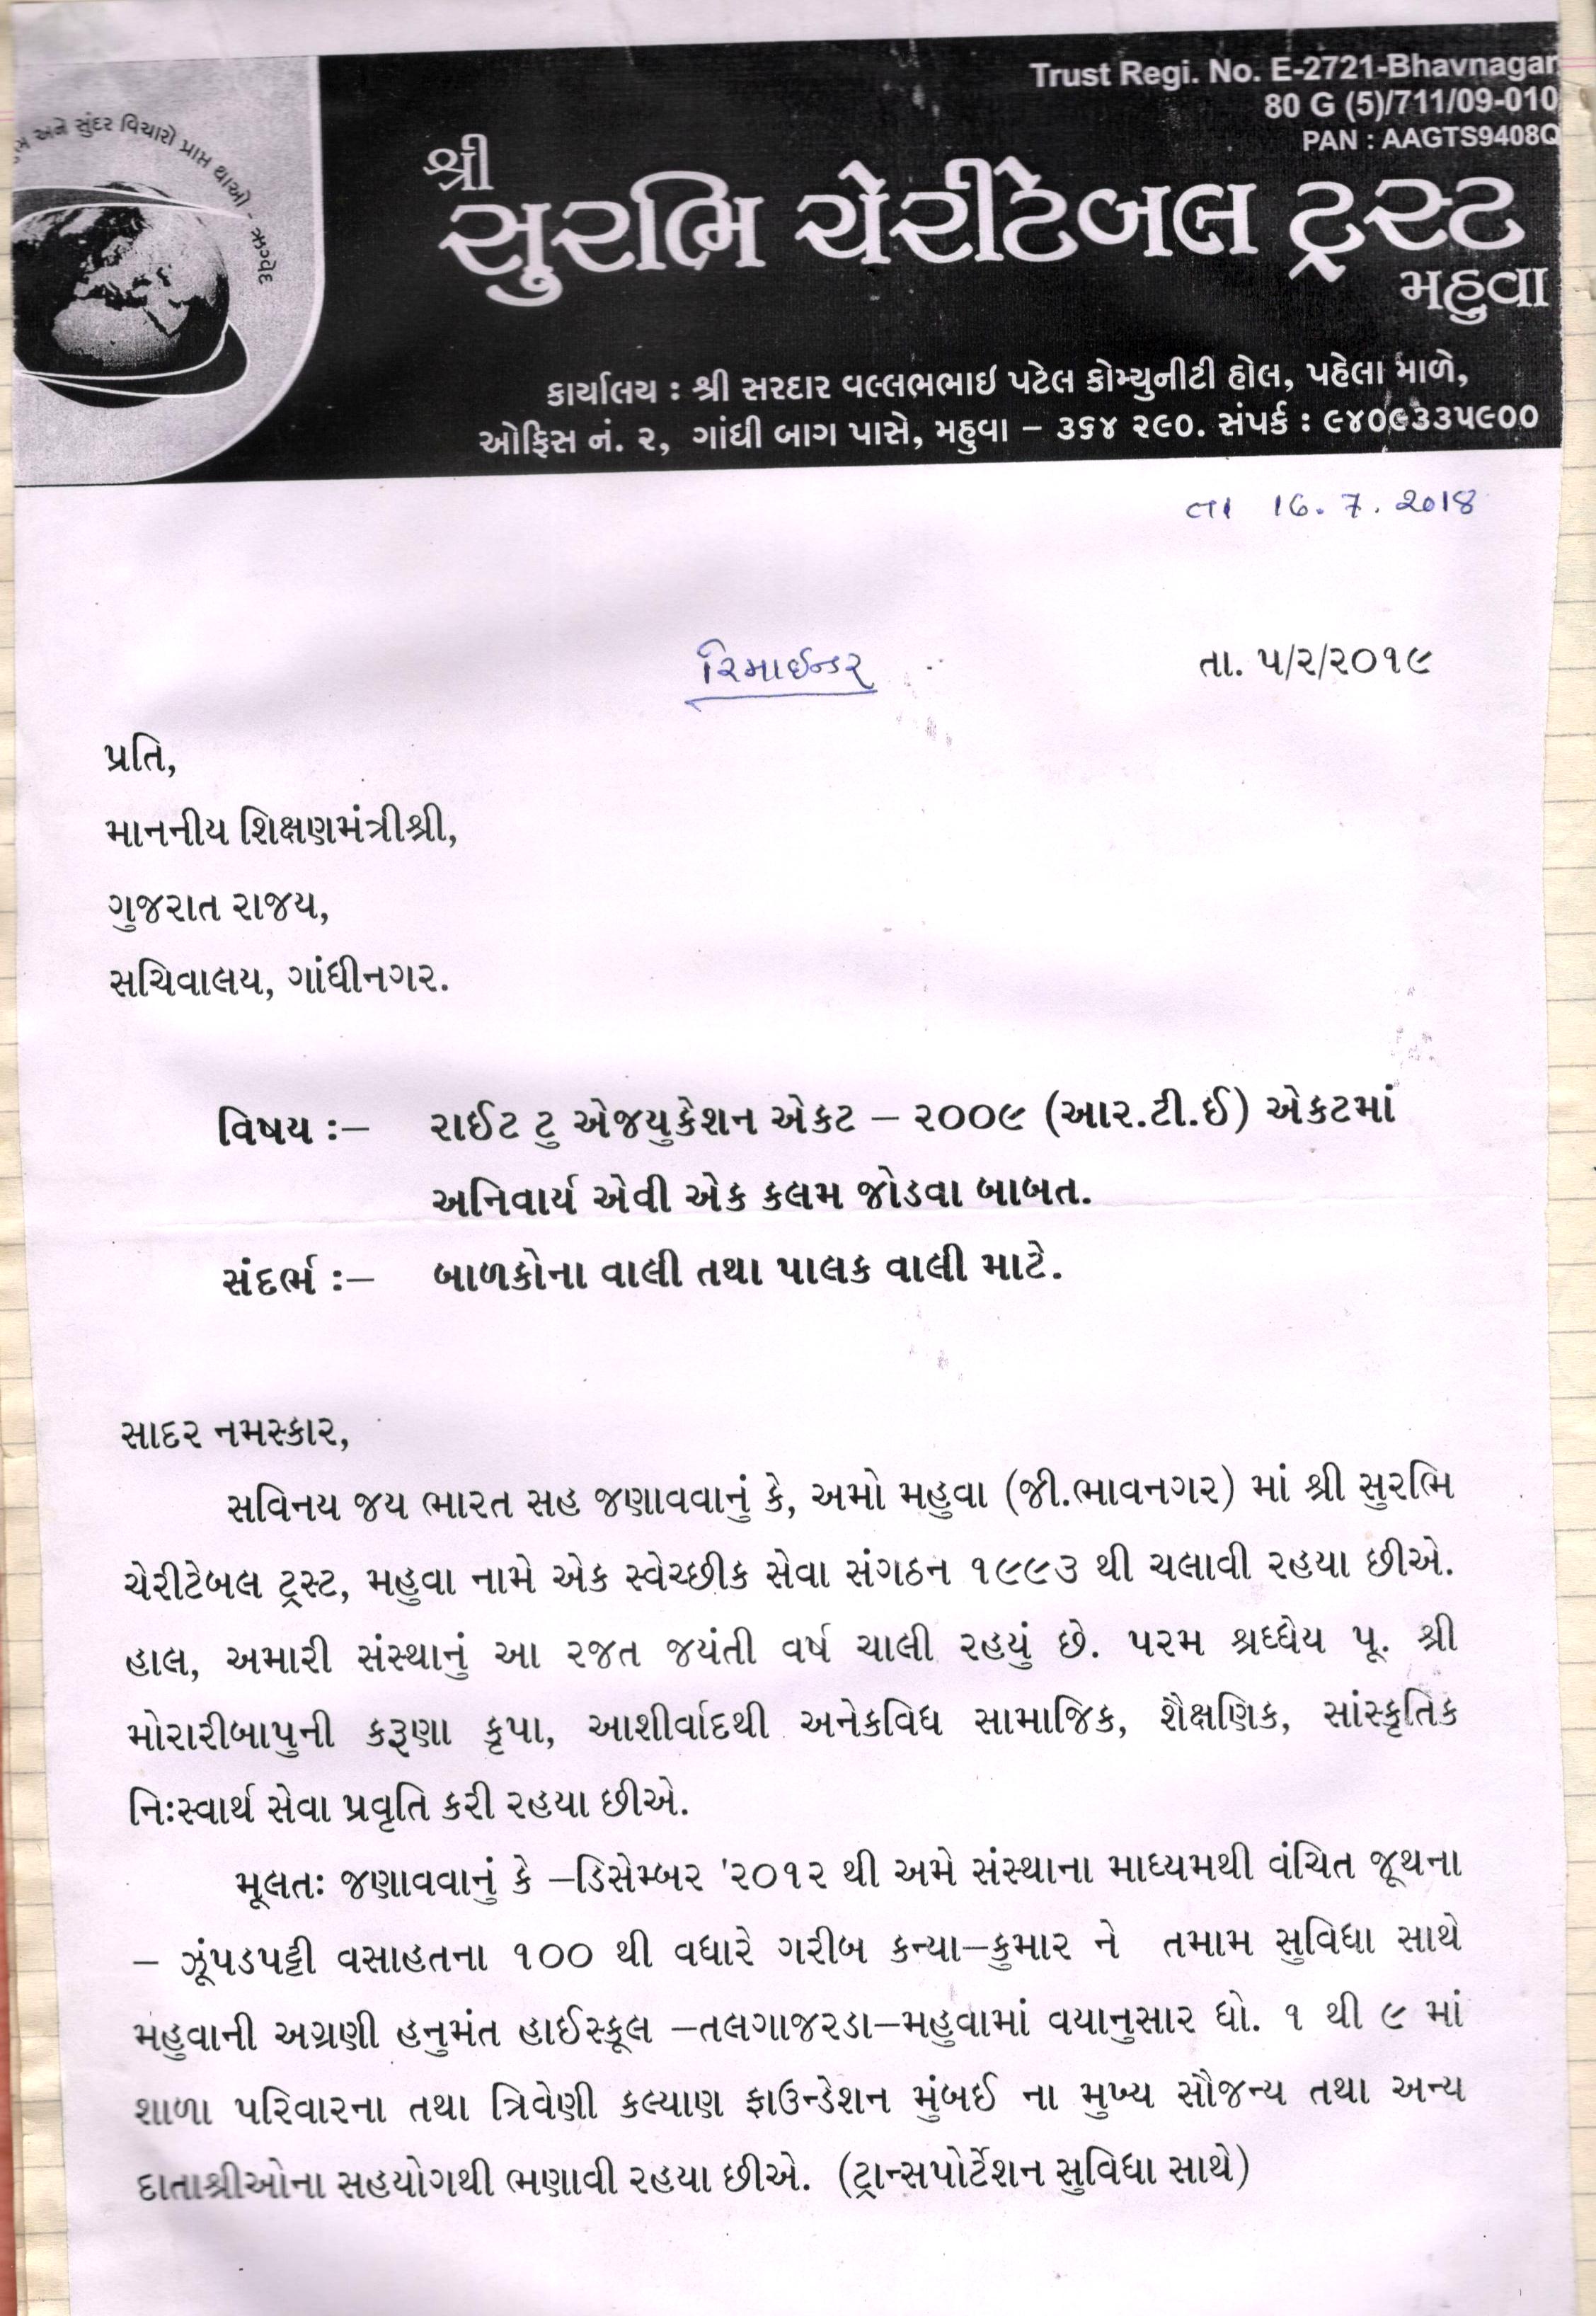 Trust Regi. No. E-2721-Bhavnagar
80 G (5)/711/09-010
PAN : AAGTS9408Q
અને સુંદર વિચારો પ્રાપ્ત થાઓ - ઋગ્વેદ
શ્રી
સુરભિ ચેરીટેબલ ટ્રસ્ટ
મહુવા
કાર્યાલય : શ્રી સરદાર વલ્લભભાઇ પટેલ કોમ્યુનીટી હોલ, પહેલા માળે,
ઓફિસ નં. ૨, ગાંધી બાગ પાસે, મહુવા – ૩૬૪ ૨૯૦. સંપર્ક : ૯૪૦૯૩૩૫૯૦૦
તા 16. 7. 2018
રિમાઈન્ડર
તા. ૫/૨/૨૦૧૯
પ્રતિ,
માનનીય શિક્ષણમંત્રીશ્રી,
ગુજરાત રાજય,
સચિવાલય, ગાંધીનગર.
વિષય :– રાઈટ ટુ એજયુકેશન એકટ – ૨૦૦૯ (આર.ટી.ઈ) એકટમાં
અનિવાર્ય એવી એક કલમ જોડવા બાબત.
સંદર્ભ :– બાળકોના વાલી તથા પાલક વાલી માટે.
સાદર નમસ્કાર,
સવિનય જય ભારત સહ જણાવવાનું કે, અમો મહુવા (જી.ભાવનગર) માં શ્રી સુરભિ
ચેરીટેબલ ટ્રસ્ટ, મહુવા નામે એક સ્વેચ્છીક સેવા સંગઠન ૧૯૯૩ થી ચલાવી રહયા છીએ.
હાલ, અમારી સંસ્થાનું આ રજત જયંતી વર્ષ ચાલી રહયું છે. પરમ શ્રધ્ધેય પૂ. શ્રી
મોરારીબાપુની કરૂણા કૃપા, આશીર્વાદથી અનેકવિધ સામાજિક, શૈક્ષણિક, સાંસ્કૃતિક
નિઃસ્વાર્થ સેવા પ્રવૃતિ કરી રહયા છીએ.
મૂલતઃ જણાવવાનું કે –ડિસેમ્બર '૨૦૧૨ થી અમે સંસ્થાના માધ્યમથી વંચિત જૂથના
– ઝૂંપડપટ્ટી વસાહતના ૧૦૦ થી વધારે ગરીબ કન્યા–કુમાર ને તમામ સુવિધા સાથે
મહુવાની અગ્રણી હનુમંત હાઈસ્કૂલ –તલગાજરડા–મહુવામાં વયાનુસાર ધો. ૧ થી ૯ માં
શાળા પરિવારના તથા ત્રિવેણી કલ્યાણ ફાઉન્ડેશન મુંબઈ ના મુખ્ય સૌજન્ય તથા અન્ય
દાતાશ્રીઓના સહયોગથી ભણાવી રહયા છીએ. (ટ્રાન્સપોર્ટેશન સુવિધા સાથે)